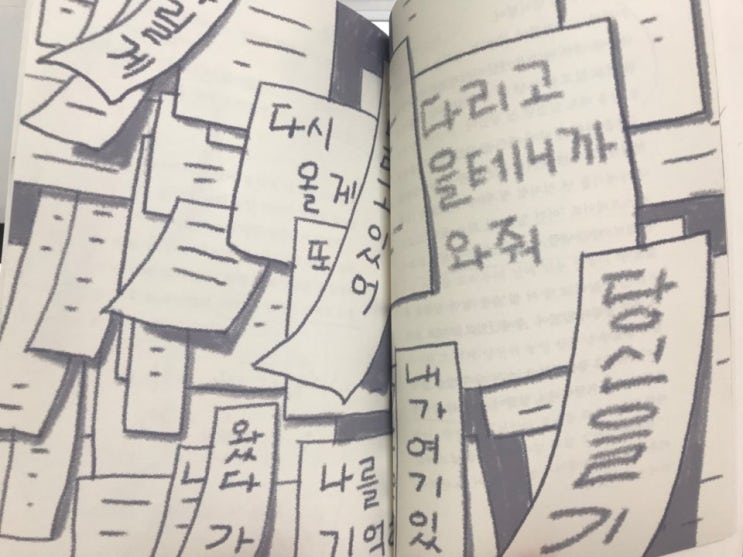 를게
다시
올게
또
있어
다리고
을테니까
와줘
당신을 기
내가여기있
왔다가
나를
기억